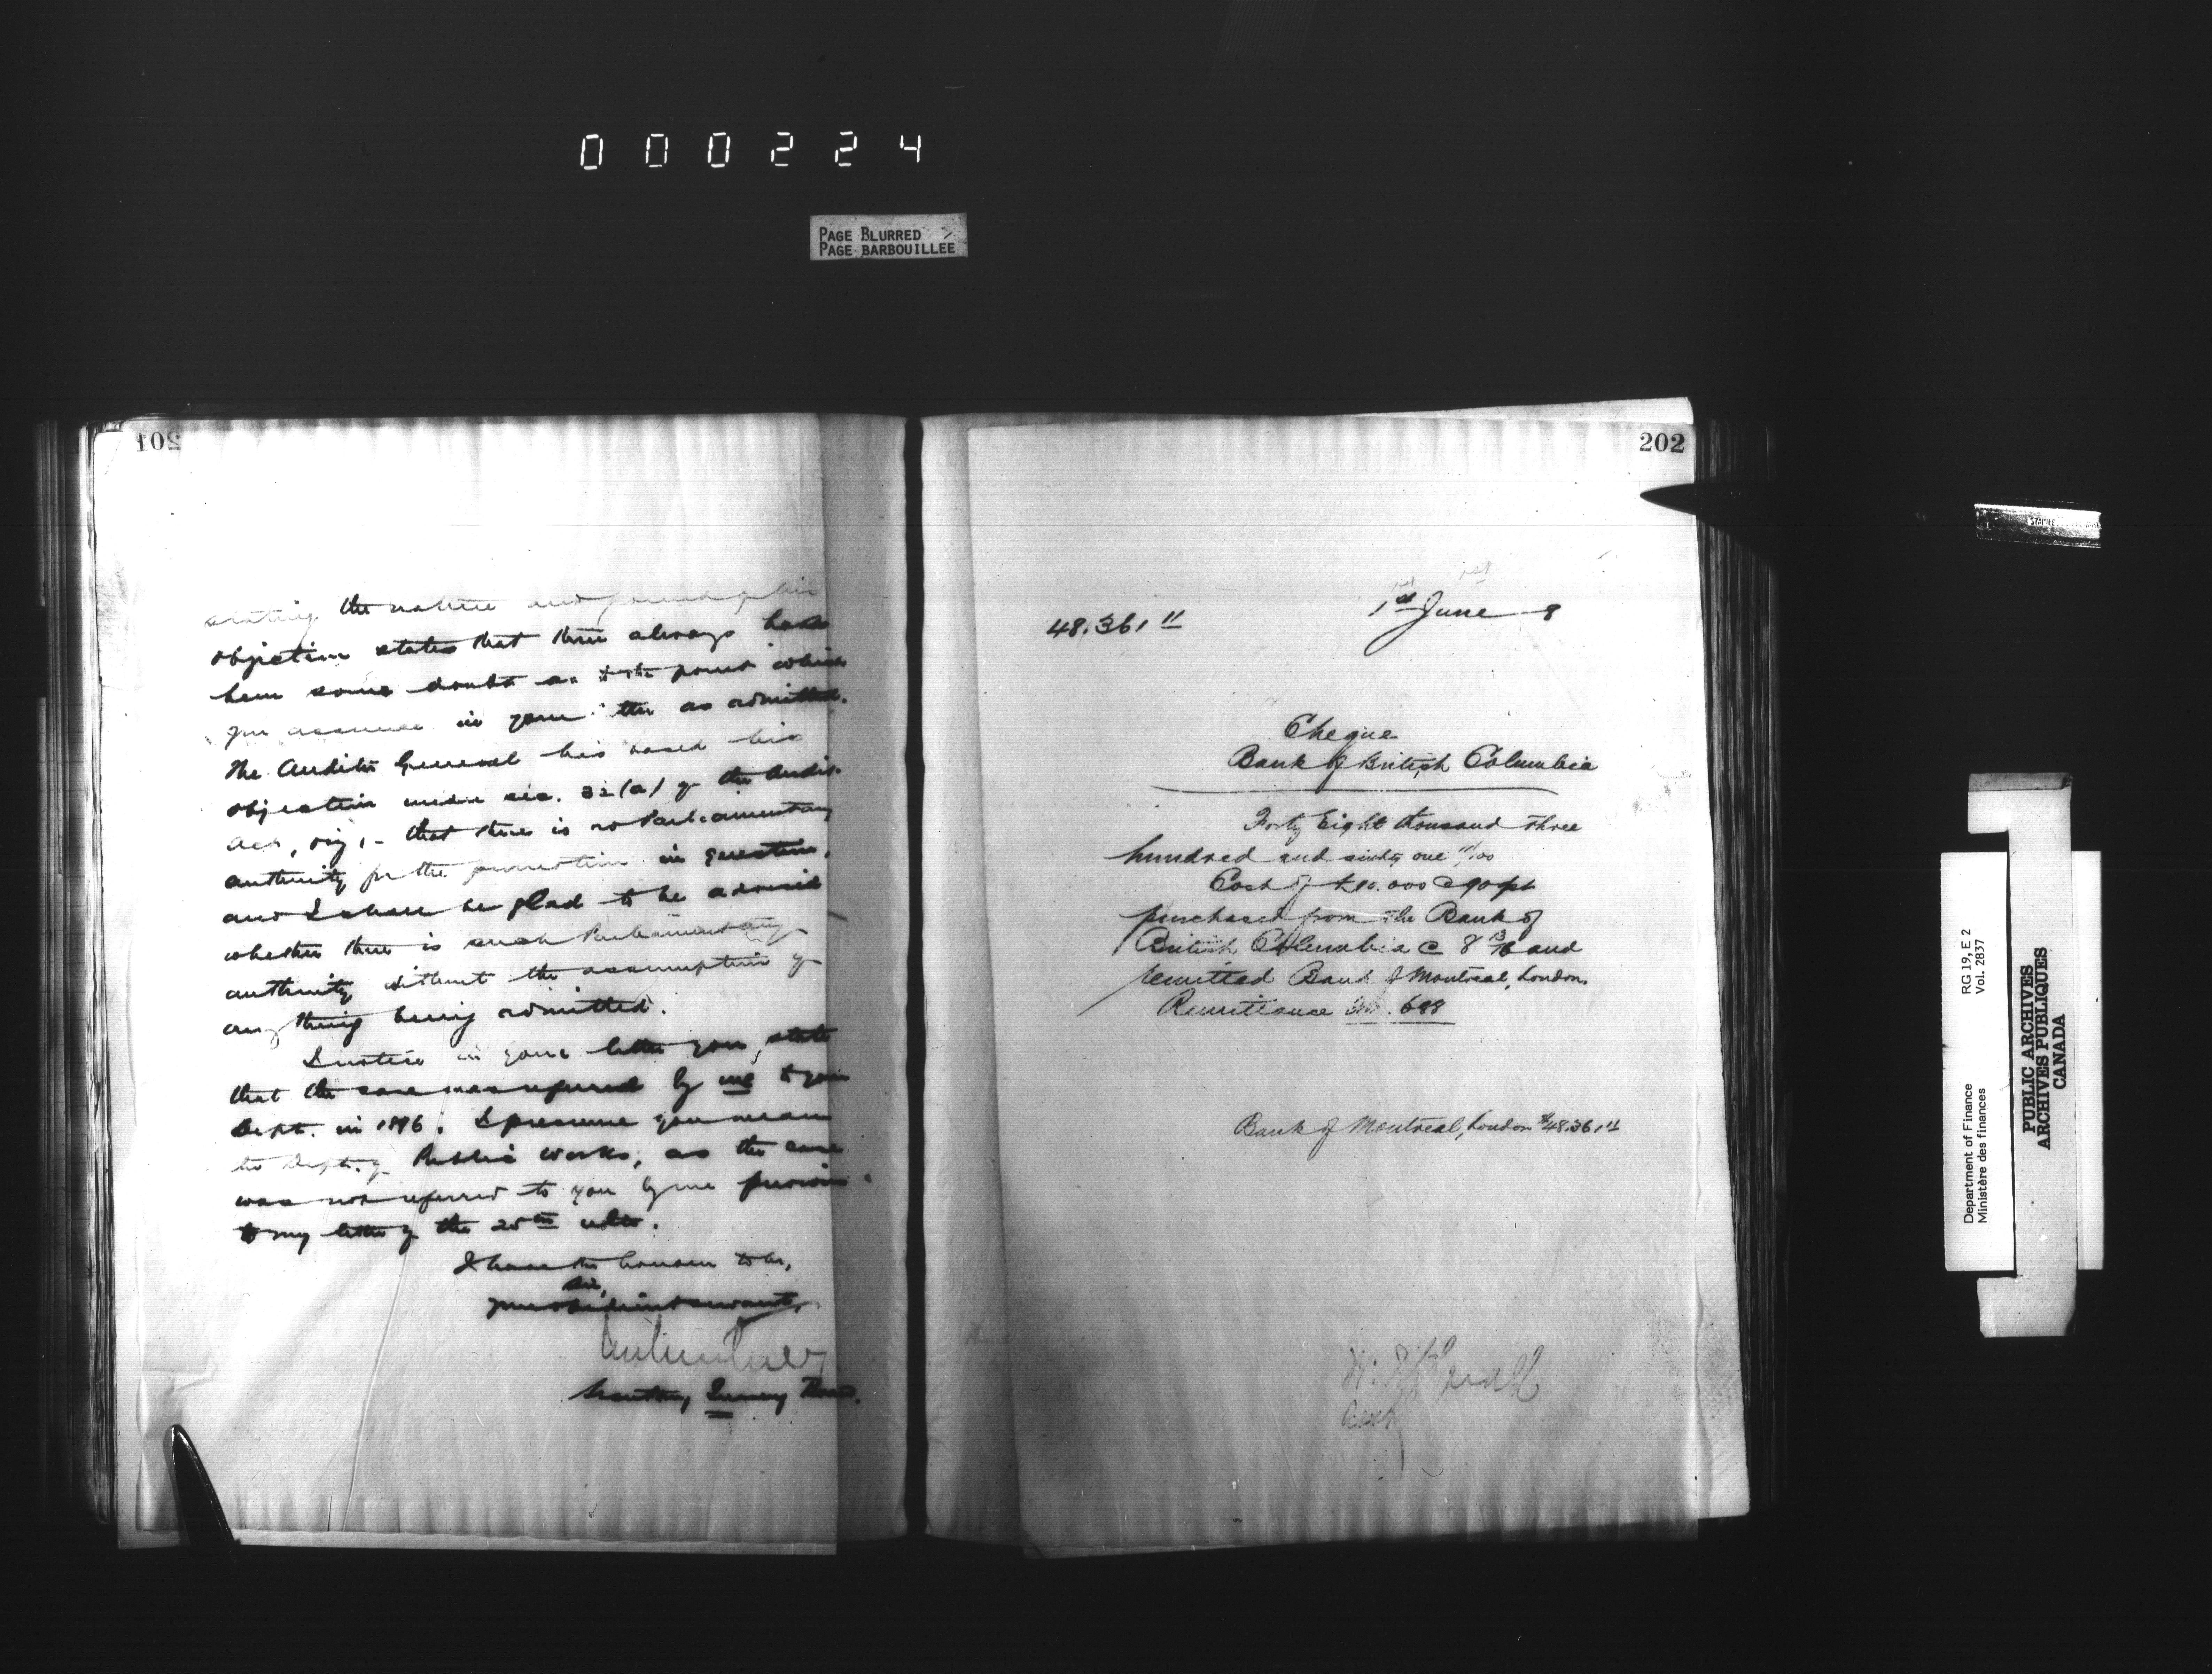 000224
PAGE BLURRED
PAGE BARBOUILLEE
201
stating the nature and his
objection states that there always has
been some doubt as to the point which
you assume in your letter as admitted.
The Auditor General his based his
objection under sec. 32 (a) of the Audit
Act, viz, - that there is no Parliamentary
authority for the in question,
and I shall be glad to be advised
whether there is such Parliamentary
authority without the assumption of
anything being admitted.
I notice in your letter you state
that the case was referred by me to your
Dept. in 1896. I presume you mean
the Dept. of Public Works, as the case
was not referred to you by me previous
to my letter of the 25th ulto.
I have the honour to be,
Sir,
your obedient servant,
Secretary Treasury Board.
202
1st June 8
48.361 11
Cheque
Bank of British Columbia
Forty Eight thousand three
hundred and sixty one 11/100
Cost of £10.000 @ 90 d/st
purchased from the Bank of
British Columbia @ 8 13/16 and
remitted Bank of Montreal, London.
Remittance No. 688
Bank of Montreal, London $48.361 11
RG 19, E 2
Vol. 2837
Department of Finance
Ministère des finances
PUBLIC ARCHIVES
ARCHIVES PUBLIQUES
CANADA